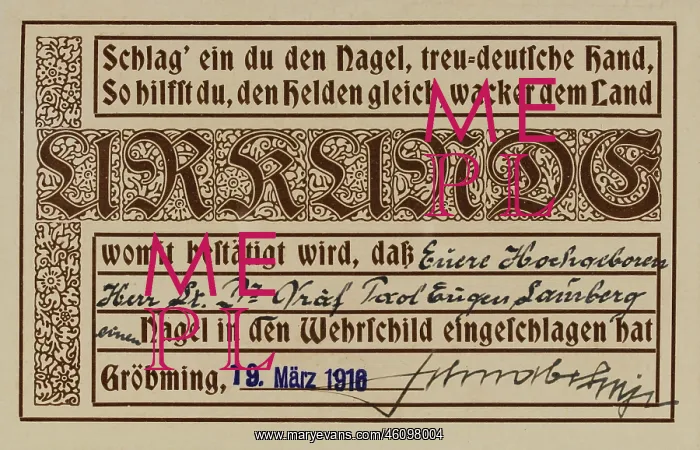 Schlag' ein du den Nagel, treu=deutsche Hand,
So hilfst du, den Helden gleich, wacker dem Land
URKUNDE
womit bestätigt wird, daß Euere Hochgeboren
Herr Dr. Graf Eugen Lamberg
einen Nagel in den Wehrschild eingeschlagen hat
Gröbming, 19. März 1916
ME
PL
ME
PL
www.maryevans.com/46098004